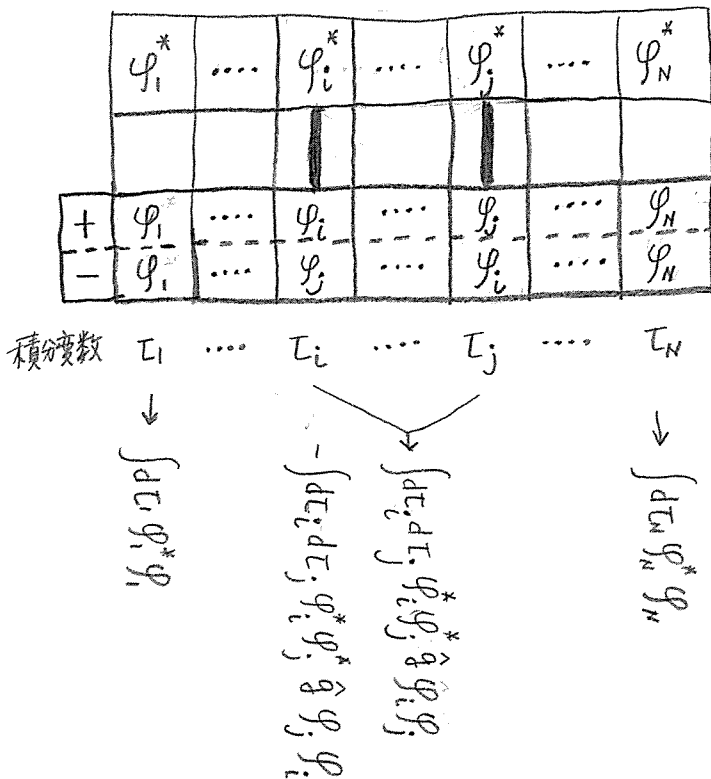 φ₁* ‥‥ φᵢ* ‥‥ φⱼ* ‥‥ φ_N*
+ φ₁ ‥‥ φᵢ ‥‥ φⱼ ‥‥ φ_N
− φ₁ ‥‥ φⱼ ‥‥ φᵢ ‥‥ φ_N
積分変数 τ₁ ‥‥ τᵢ ‥‥ τⱼ ‥‥ τ_N
∫dτ₁ φ₁* φ₁
−∫dτᵢ dτⱼ φᵢ* φⱼ* ĝ φⱼ φᵢ
∫dτᵢ dτⱼ φᵢ* φⱼ* ĝ φᵢ φⱼ
∫dτ_N φ_N* φ_N